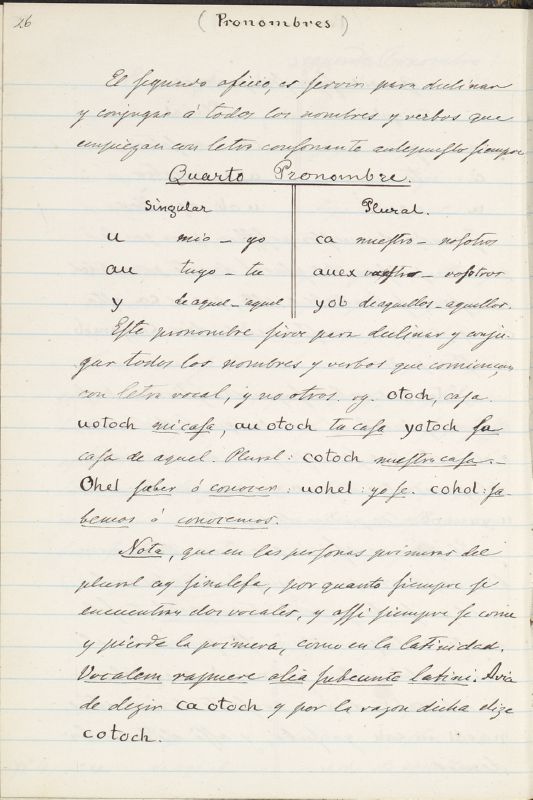 26
(Pronombres)
El segundo oficio, es servir para declinar
y conjugar á todos los nombres y verbos que
empiezan con letra consonante antepuesto siempre
Quarto Pronombre.
Singular Plural.
u mio _ yo ca nuestro _ nosotros
au tuyo _ tu auex vosotros
y de aquel _ aquel yob de aquellos _ aquellos.
Este pronombre sirve para declinar y conju-
gar todos los nombres y verbos que comienzan
con letra vocal, y no otros. vg. otoch, casa.
uotoch mi casa, au otoch tu casa yotoch su
casa de aquel. Plural: cotoch nuestra casa._
Ohel saber ó conocer: uohel: yo se. cohol: sa-
bemos ó conocemos.
Nota, que en las personas primeras del
plural ay sinalefa, por quanto siempre se
encuentran dos vocales, y assi siempre se come
y pierde la primera, como en la latinidad.
Vocalem rapuere alia subeunte latini. Avia
de dezir ca otoch y por la razon dicha dize
cotoch.